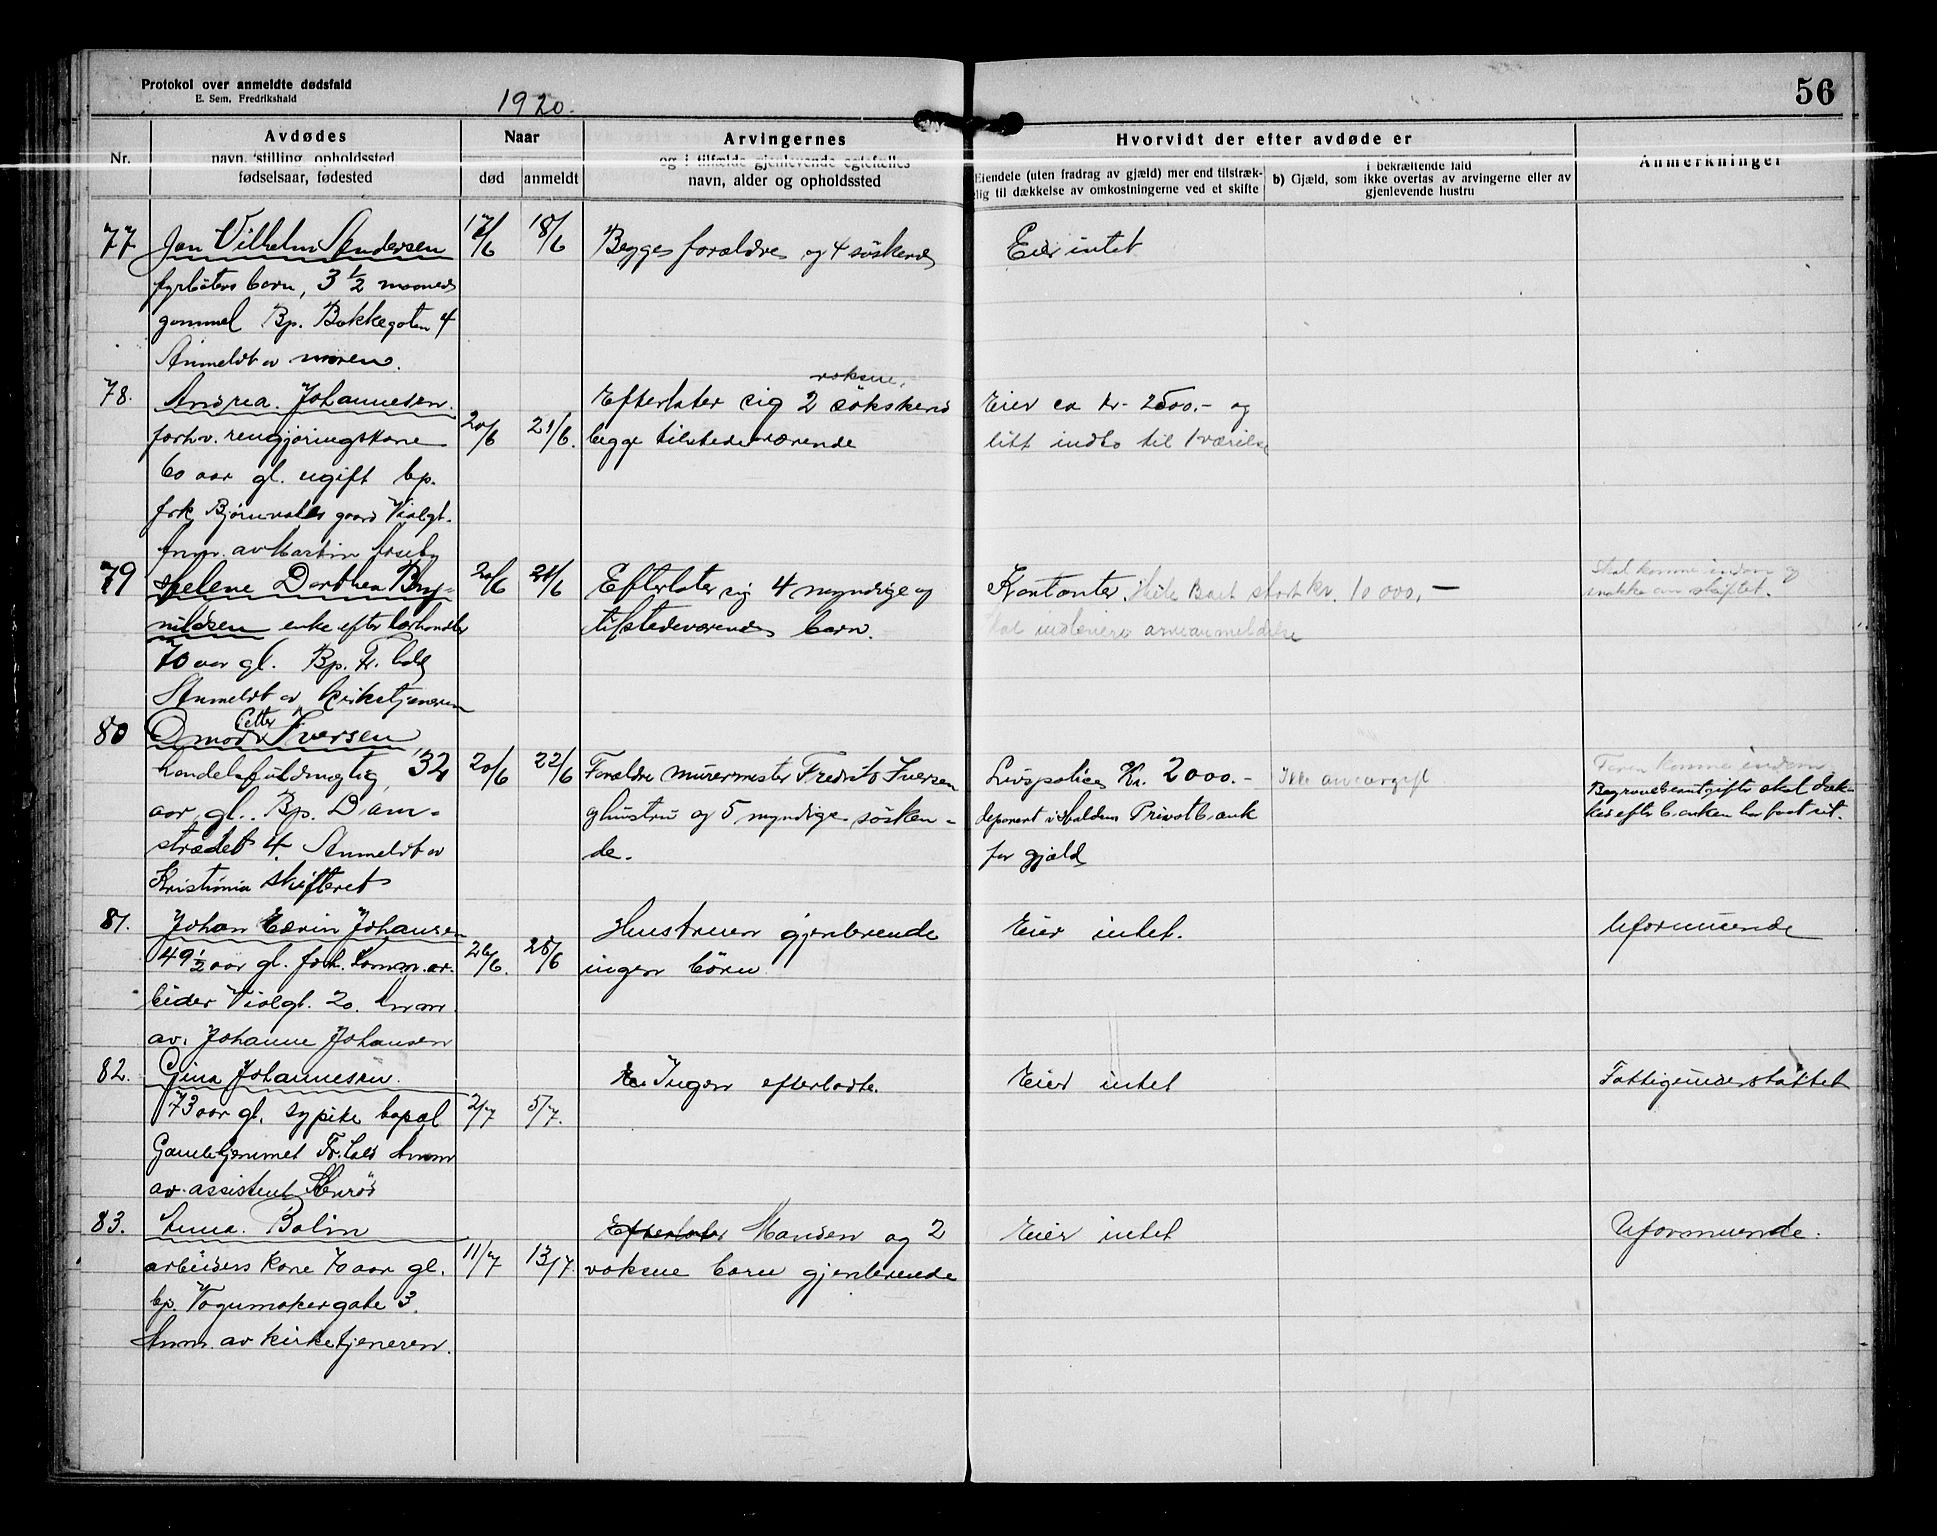 Protokol over anmeldte dødsfald
E. Sem, Fredrikshald
1920.
56
Nr.
Avdødes
navn, stilling, opholdssted
fødselsaar, fødested
Naar
død
anmeldt
Arvingernes
og i tilfælde gjenlevende egtefælles
navn, alder og opholdssted
Hvorvidt der efter avdøde er
Eiendele (uten fradrag av gjæld) mer end tilstræk-
elig til dækkelse av omkostningerne ved et skifte
i bekræftende fald
b) Gjæld, som ikke overtas av arvingerne eller av
gjenlevende hustru
Anmerkninger
77
Jan Vilhelm Andersen
fyrbøters barn, 3 1/2 maaneds
gammel Bp. Bakkegaten 4
Anmeldt av moren.
17/6
18/6
Begge forældre og 4 søskende
Eier intet
78.
Andrea. Johannesen.
forhv. rengjøringskone
60 aar gl. ugift bp.
frk. gaard Violgt.
Anm. av Martin
20/6
21/6.
voksne.
Efterlater sig 2 søskend
begge tilstedeværende
Eier ca kr. 2500.- og
litt indbo til 1 værelse
79
Helene Dorthea Bry-
nildsen enke efter
70 aar gl. Bp. Fr. hald
Anmeldt av kirketjeneren
20/6
21/6
Efterlater sig 4 myndige og
tilstedeværende barn.
Kontanter. kr. 10 000.—
Skal indlevere arveanmeldelse
Skal komme indom og
snakke om skiftet.
80
Omar Petter Iversen
handelsfuldmægtig, 32
aar gl. Bp. Dam-
strædet 4. Anmeldt av
Kristiania skifteret
20/6
22/6
Forældre murermester Iversen
og hustru og 5 myndige søsken-
de.
Livspolice Kr. 2000.-
deponert i Haldens Privatbank
for gjæld
Ikke arveavgift
Faren komme indom
Begravelsesutgifter skal dæk-
kes efter banken har faat sit.
81.
Johan Edvin Johansen
49 1/2 aar gl. forh. Komm. ar-
beider Violgt. 20. Anm.
av. Johanne Johansen
26/6.
28/6
Hustruen gjenlevende
ingen børn
Eier intet.
Uformuende
82.
Gina Johannesen.
73 aar gl. sypike bopæl
Gamlehjemmet Fr.hald Anm
av. assistent
2/7
5/7.
Ingen efterladte.
Eier intet
Fattigunderstøttet
83.
Anna. Bolin
arbeiders kone 70 aar gl.
bp. Vognmakergate 3.
Anm. av kirketjeneren.
11/7
13/7.
Efterlater Manden og 2
voksne barn gjenlevende
Eier intet
Uformuende.